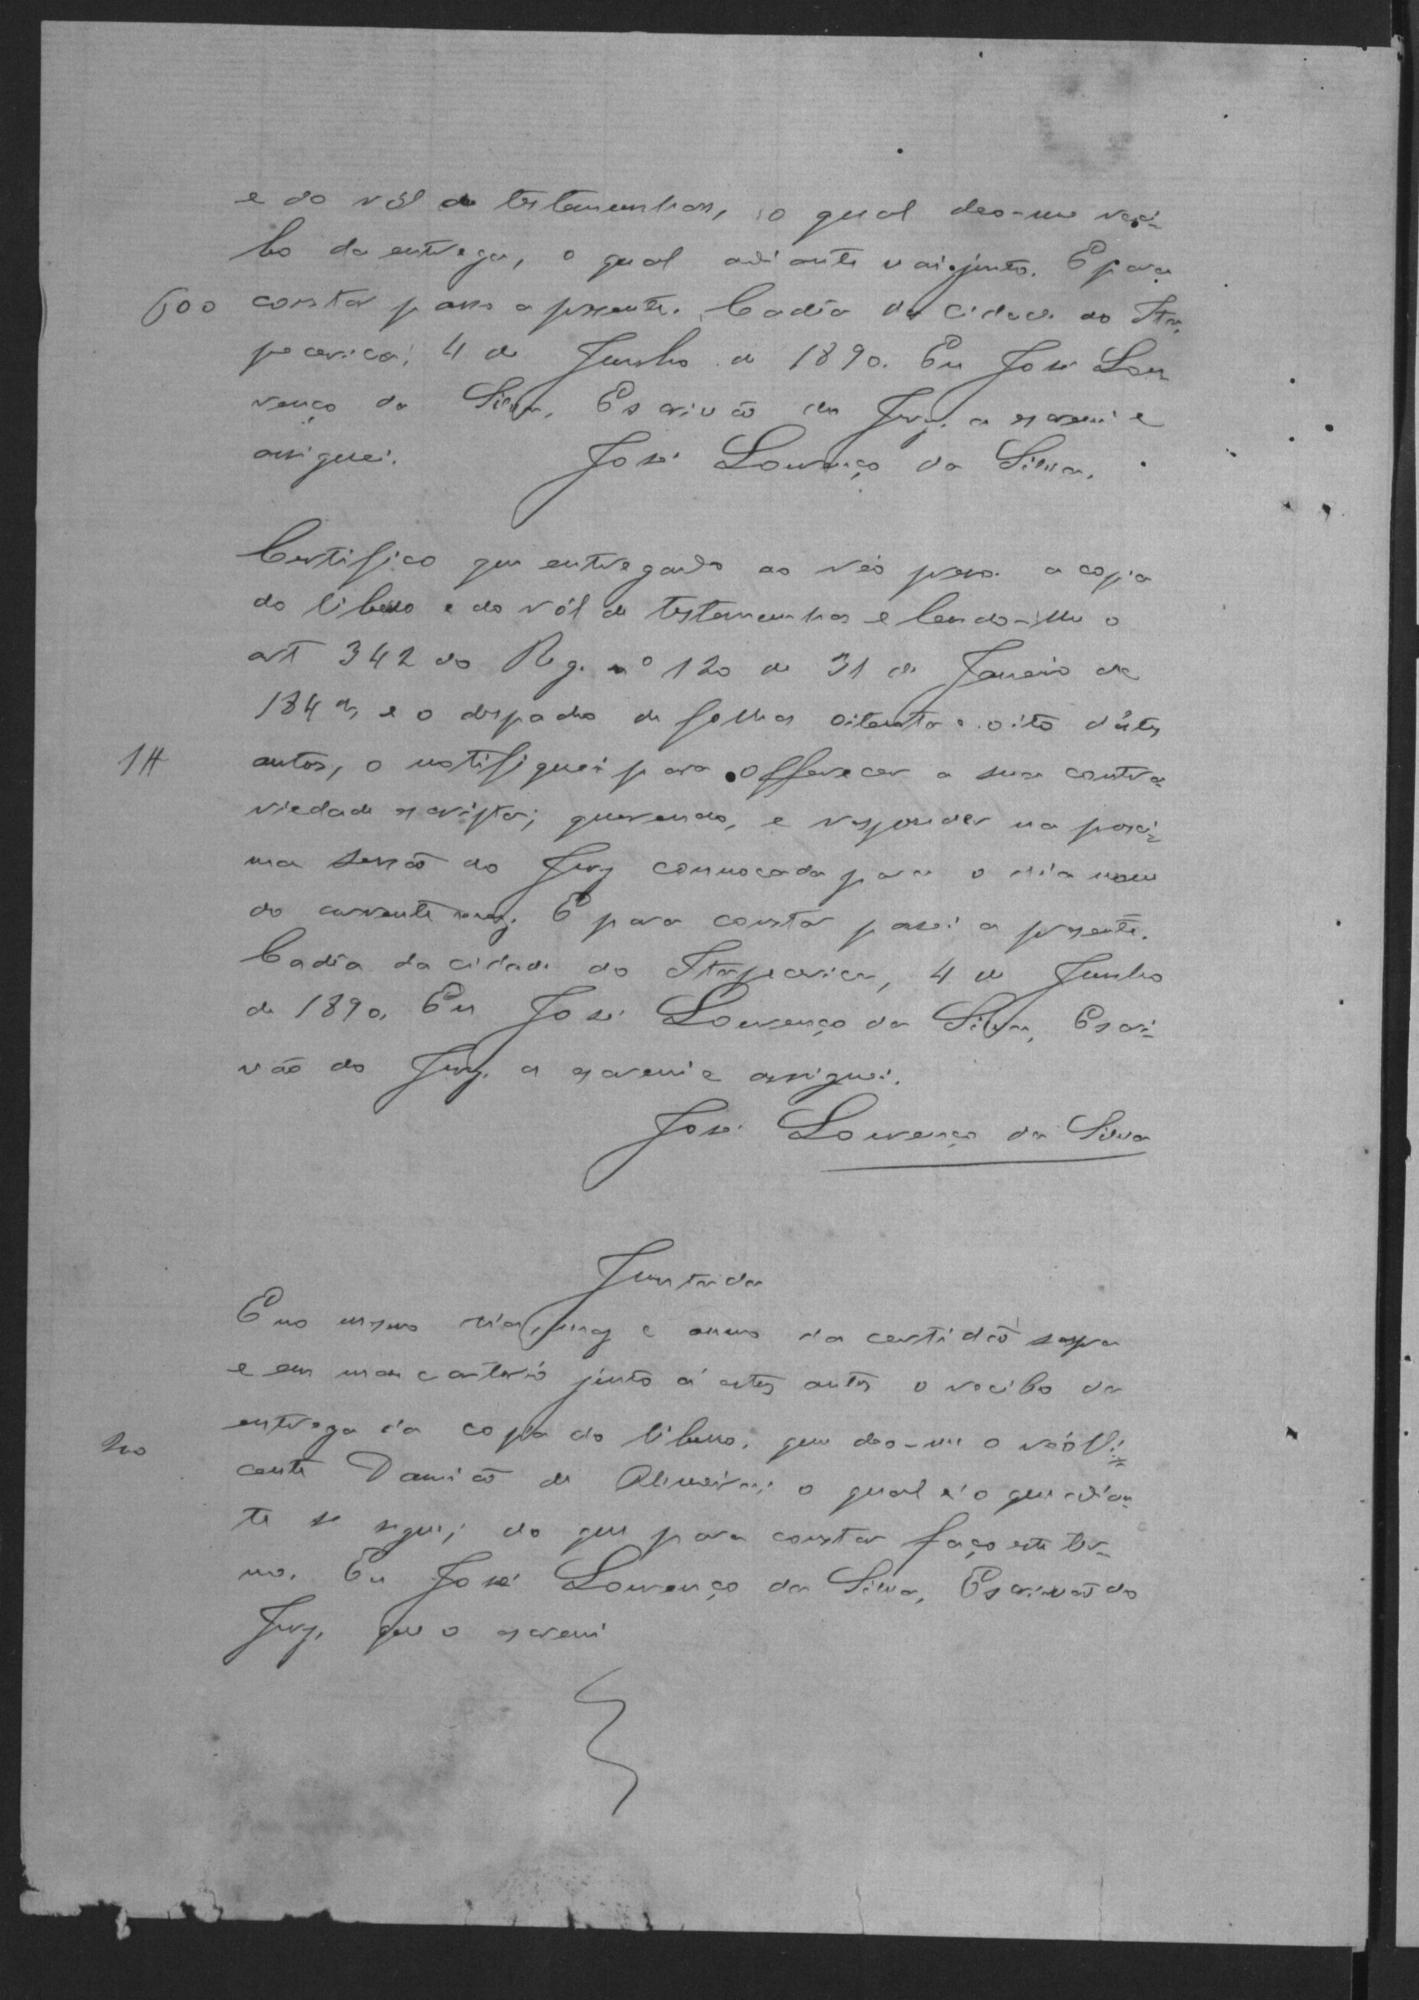 e do ról de testemunhas, o qual deo-me reci-
bo da entrega, o qual adiante vai junto. E para
600 constar passo a presente. Cadêa da cidade do Ita-
pecerica, 4 de Junho de 1890. Eu José Lou
renço da Silva, Escrivão do Jury, a escrevi e
assignei. José Lourenço da Silva.
Certifico que entregando ao réo preso a copia
do libello e do ról de testemunhas e lendo-lhe o
art 342 do Reg. nº 120 de 31 de Janeiro de
184 e o despacho de folhas oitenta e oito d'estes
1H autos, o notifiquei para offerecer a sua contra
riedade escripta, querendo, e responder na proxi-
ma sessão do Jury convocada para o dia nove
do corrente mez. E para constar passei a presente.
Cadêa da cidade do Itapecerica, 4 de Junho
de 1890. Eu José Lourenço da Silva, Escri-
vão do Jury, a escrevi e assignei.
José Lourenço da Silva
Juntada
E no mesmo dia, mez e anno da certidão supra
e em meu cartorio junto á estes autos o recibo da
entrega da copia do libello, que deo-me o réo Vi-
200 cente Damião de Oliveira; o qual é o que adian-
te se segue; do que para constar faço este ter-
mo. Eu José Lourenço da Silva, Escrivão do
Jury, que o escrevi